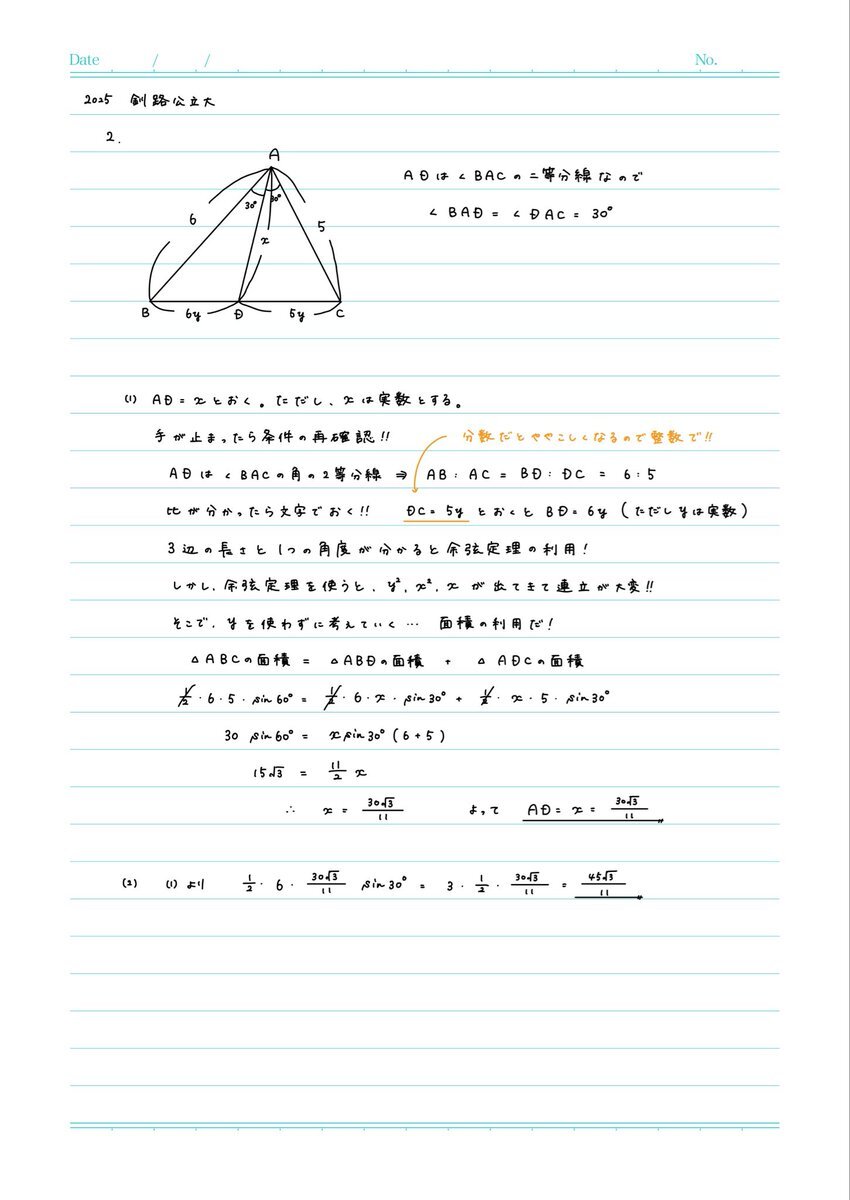 Date / / No.
2025 釧路公立大
2.
A
30° 30°
6
x
5
B 6y D 5y C
ADは∠BACの二等分線なので
∠BAD = ∠DAC = 30°
(1) AD = xとおく。ただし、xは実数とする。
手が止まったら条件の再確認!!
分数だとややこしくなるので整数で!!
ADは∠BACの角の2等分線 ⇒ AB : AC = BD : DC = 6 : 5
比が分かったら文字でおく!! DC = 5y とおくと BD = 6y (ただしyは実数)
3辺の長さと1つの角度が分かると余弦定理の利用!
しかし、余弦定理を使うと、y², x², x が出てきて連立が大変!!
そこで、yを使わずに考えていく… 面積の利用だ!
△ABCの面積 = △ABDの面積 + △ADCの面積
1/2・6・5・sin60° = 1/2・6・x・sin30° + 1/2・x・5・sin30°
30 sin60° = x sin30° (6+5)
15√3 = 11/2 x
∴ x = 30√3/11 よって AD = x = 30√3/11
(2) (1)より 1/2・6・30√3/11 sin30° = 3・1/2・30√3/11 = 45√3/11